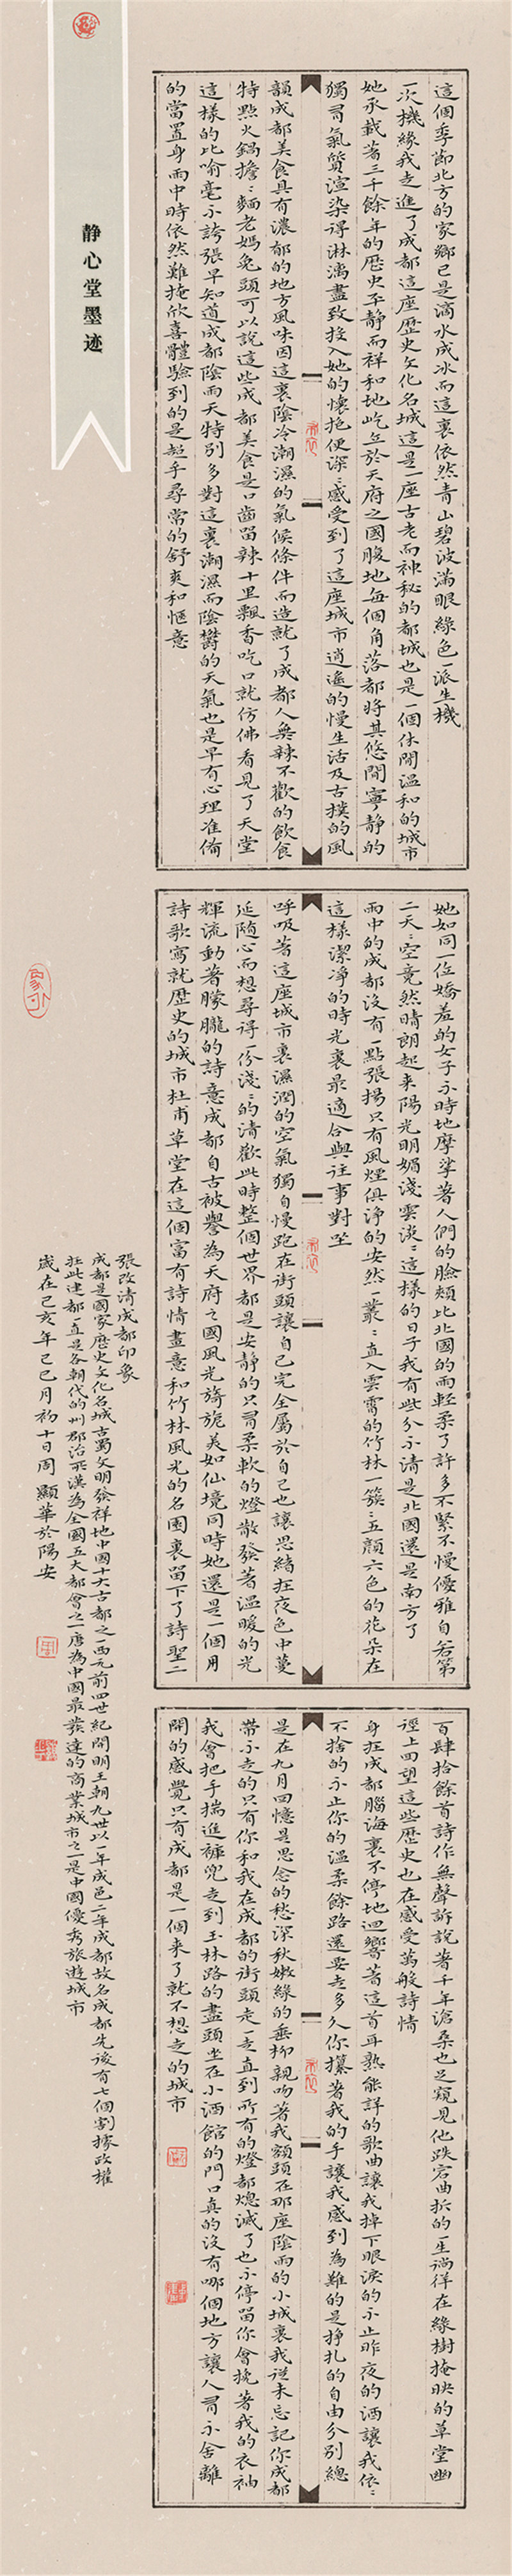 這個季節北方的家鄉已是滴水成冰而這裏依然青山碧波滿眼綠色一派生機
一次機緣我走進了成都這座歷史文化名城這是一座古老而神秘的都城也是一個休閒溫和的城市
她承載著三千餘年的歷史平静而祥和地屹立於天府之國腹地每個角落都將其悠閒寧静的
獨有氣質渲染得淋漓盡致投入她的懷抱便深〻感受到了這座城市逍遙的慢生活及古撲的風
韻成都美食具有濃郁的地方風味因這裏陰冷潮濕的氣候條件而造就了成都人無辣不歡的飲食
特點火鍋擔〻麵老媽兔頭可以說這些成都美食是口齒留辣十里飄香吃口就仿佛看見了天堂
這樣的比喻毫不誇張早知道成都陰雨天特别多對這裏潮濕而陰鬱的天氣也是早有心理准備
的當置身雨中時依然難掩欣喜體驗到的是超乎尋常的舒爽和愜意
她如同一位嬌羞的女子不時地摩挲著人們的臉頰比北國的雨輕柔了許多不緊不慢優雅自若第
二天〻空竟然晴朗起来陽光明媚淺雲淡〻這樣的日子我有些分不清是北國還是南方了
雨中的成都没有一點張揚只有風煙俱浄的安然一叢〻直入雲霄的竹林一簇〻五顏六色的花朵在
這樣潔浄的時光裏最適合與往事對坐
呼吸著這座城市裏濕潤的空氣獨自慢跑在街頭讓自己完全屬於自己也讓思緒在夜色中蔓
延隨心而想尋得一份淺〻的清歡此時整個世界都是安静的只有柔軟的燈散發著溫暖的光
輝流動著朦朧的詩意成都自古被譽為天府之國風光旖旎美如仙境同時她還是一個用
詩歌寫就歷史的城市杜甫草堂在這個富有詩情畫意和竹林風光的名園裏留下了詩聖二
百肆拾餘首詩作無聲訴說著千年滄桑也足窺見他跌宕曲折的一生徜徉在綠樹掩映的草堂幽
徑上回望這些歷史也在感受萬般詩情
身在成都腦海裏不停地迴響著這首耳熟能詳的歌曲讓我掉下眼淚的不止昨夜的酒讓我依〻
不捨的不止你的溫柔餘路還要走多久你攥著我的手讓我感到為難的是掙扎的自由分别總
是在九月回憶是思念的愁深秋嫩綠的垂柳親吻著我額頭在那座陰雨的小城裏我從未忘記你成都
帶不走的只有你和我在成都的街頭走一走直到所有的燈都熄滅了也不停留你會挽著我的衣袖
我會把手揣進褲兜走到玉林路的盡頭坐在小酒館的門口真的没有哪個地方讓人有不舍離
開的感覺只有成都是一個来了就不想走的城市
張改清成都印象
成都是國家歷史文化名城古蜀文明發祥地中國十大古都之一西元前四世紀開明王朝九世以一年成邑二年成都故名成都先後有七個割據政權
在此建都一直是各朝代的州郡治所漢為全國五大都會之一唐為中國最發達的商業城市之一是中國優秀旅遊城市
歲在己亥年己巳月初十日周顯華於陽安
静心堂墨迹